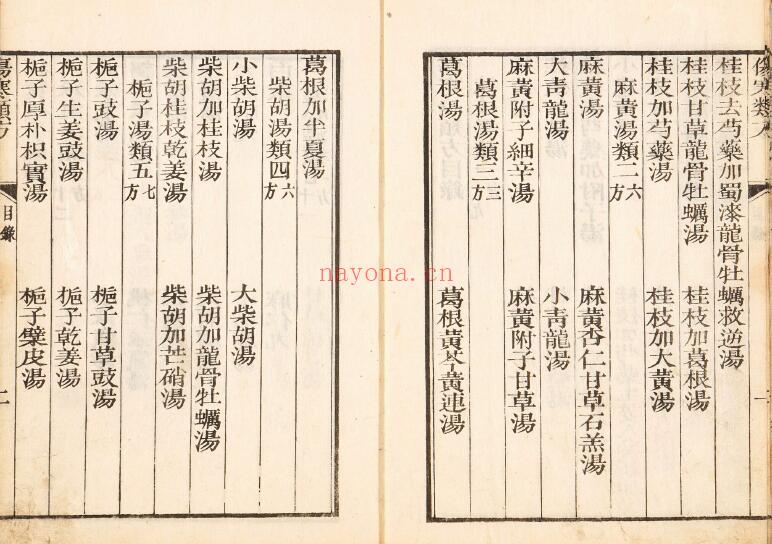 傷寒類方
桂枝去芍藥加蜀漆龍骨牡蠣救逆湯
桂枝甘草龍骨牡蠣湯 桂枝加葛根湯
桂枝加芍藥湯 桂枝加大黃湯
麻黃湯類二 六方
麻黃湯 麻黃杏仁甘草石羔湯
大青龍湯 小青龍湯
麻黃附子細辛湯 麻黃附子甘草湯
葛根湯類三 三方
葛根湯 葛根黃芩黃連湯
葛根加半夏湯
柴胡湯類四 六方
小柴胡湯 大柴胡湯
柴胡加桂枝湯 柴胡加龍骨牡蠣湯
柴胡桂枝乾姜湯 柴胡加芒硝湯
梔子湯類五 七方
梔子豉湯 梔子甘草豉湯
梔子生姜豉湯 梔子乾姜湯
梔子厚朴枳實湯 梔子檗皮湯
傷寒類方 目錄 二
nayona.cn